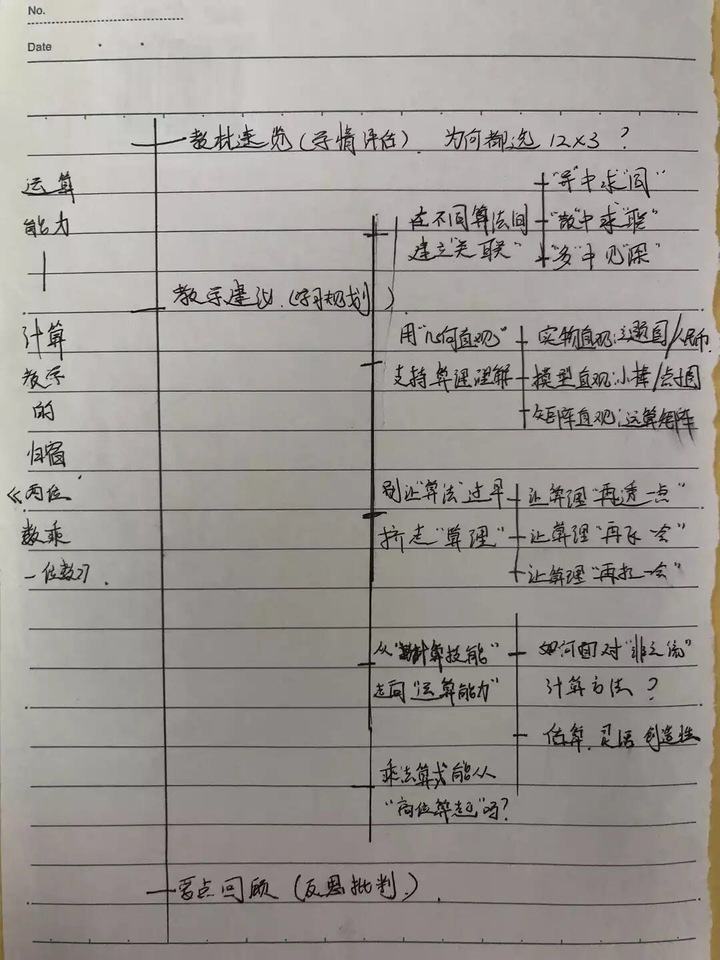 No.
Date
教材速览(学情评估) 为何都选 12×3 ?
运算
能力
计算
教学
的
归宿
《两位
数乘
一位数》
教学建议(学习规划)
在不同算法间
建立"关联"
"异"中求"同"
"散"中求"联"
"多"中见"深"
用"几何直观"
支持算理理解
实物直观:主题图/人民币
模型直观:小棒/点子图
矩阵直观:运算矩阵
别让"算法"过早
挤走"算理"
让算理"再透一点"
让算理"再飞一会"
让算理"再扎一会"
从"计算技能"
走向"运算能力"
如何面对"非主流"
计算方法?
估算、灵活 创造性
乘法算式能从
"高位算起"吗?
要点回顾(反思批判)